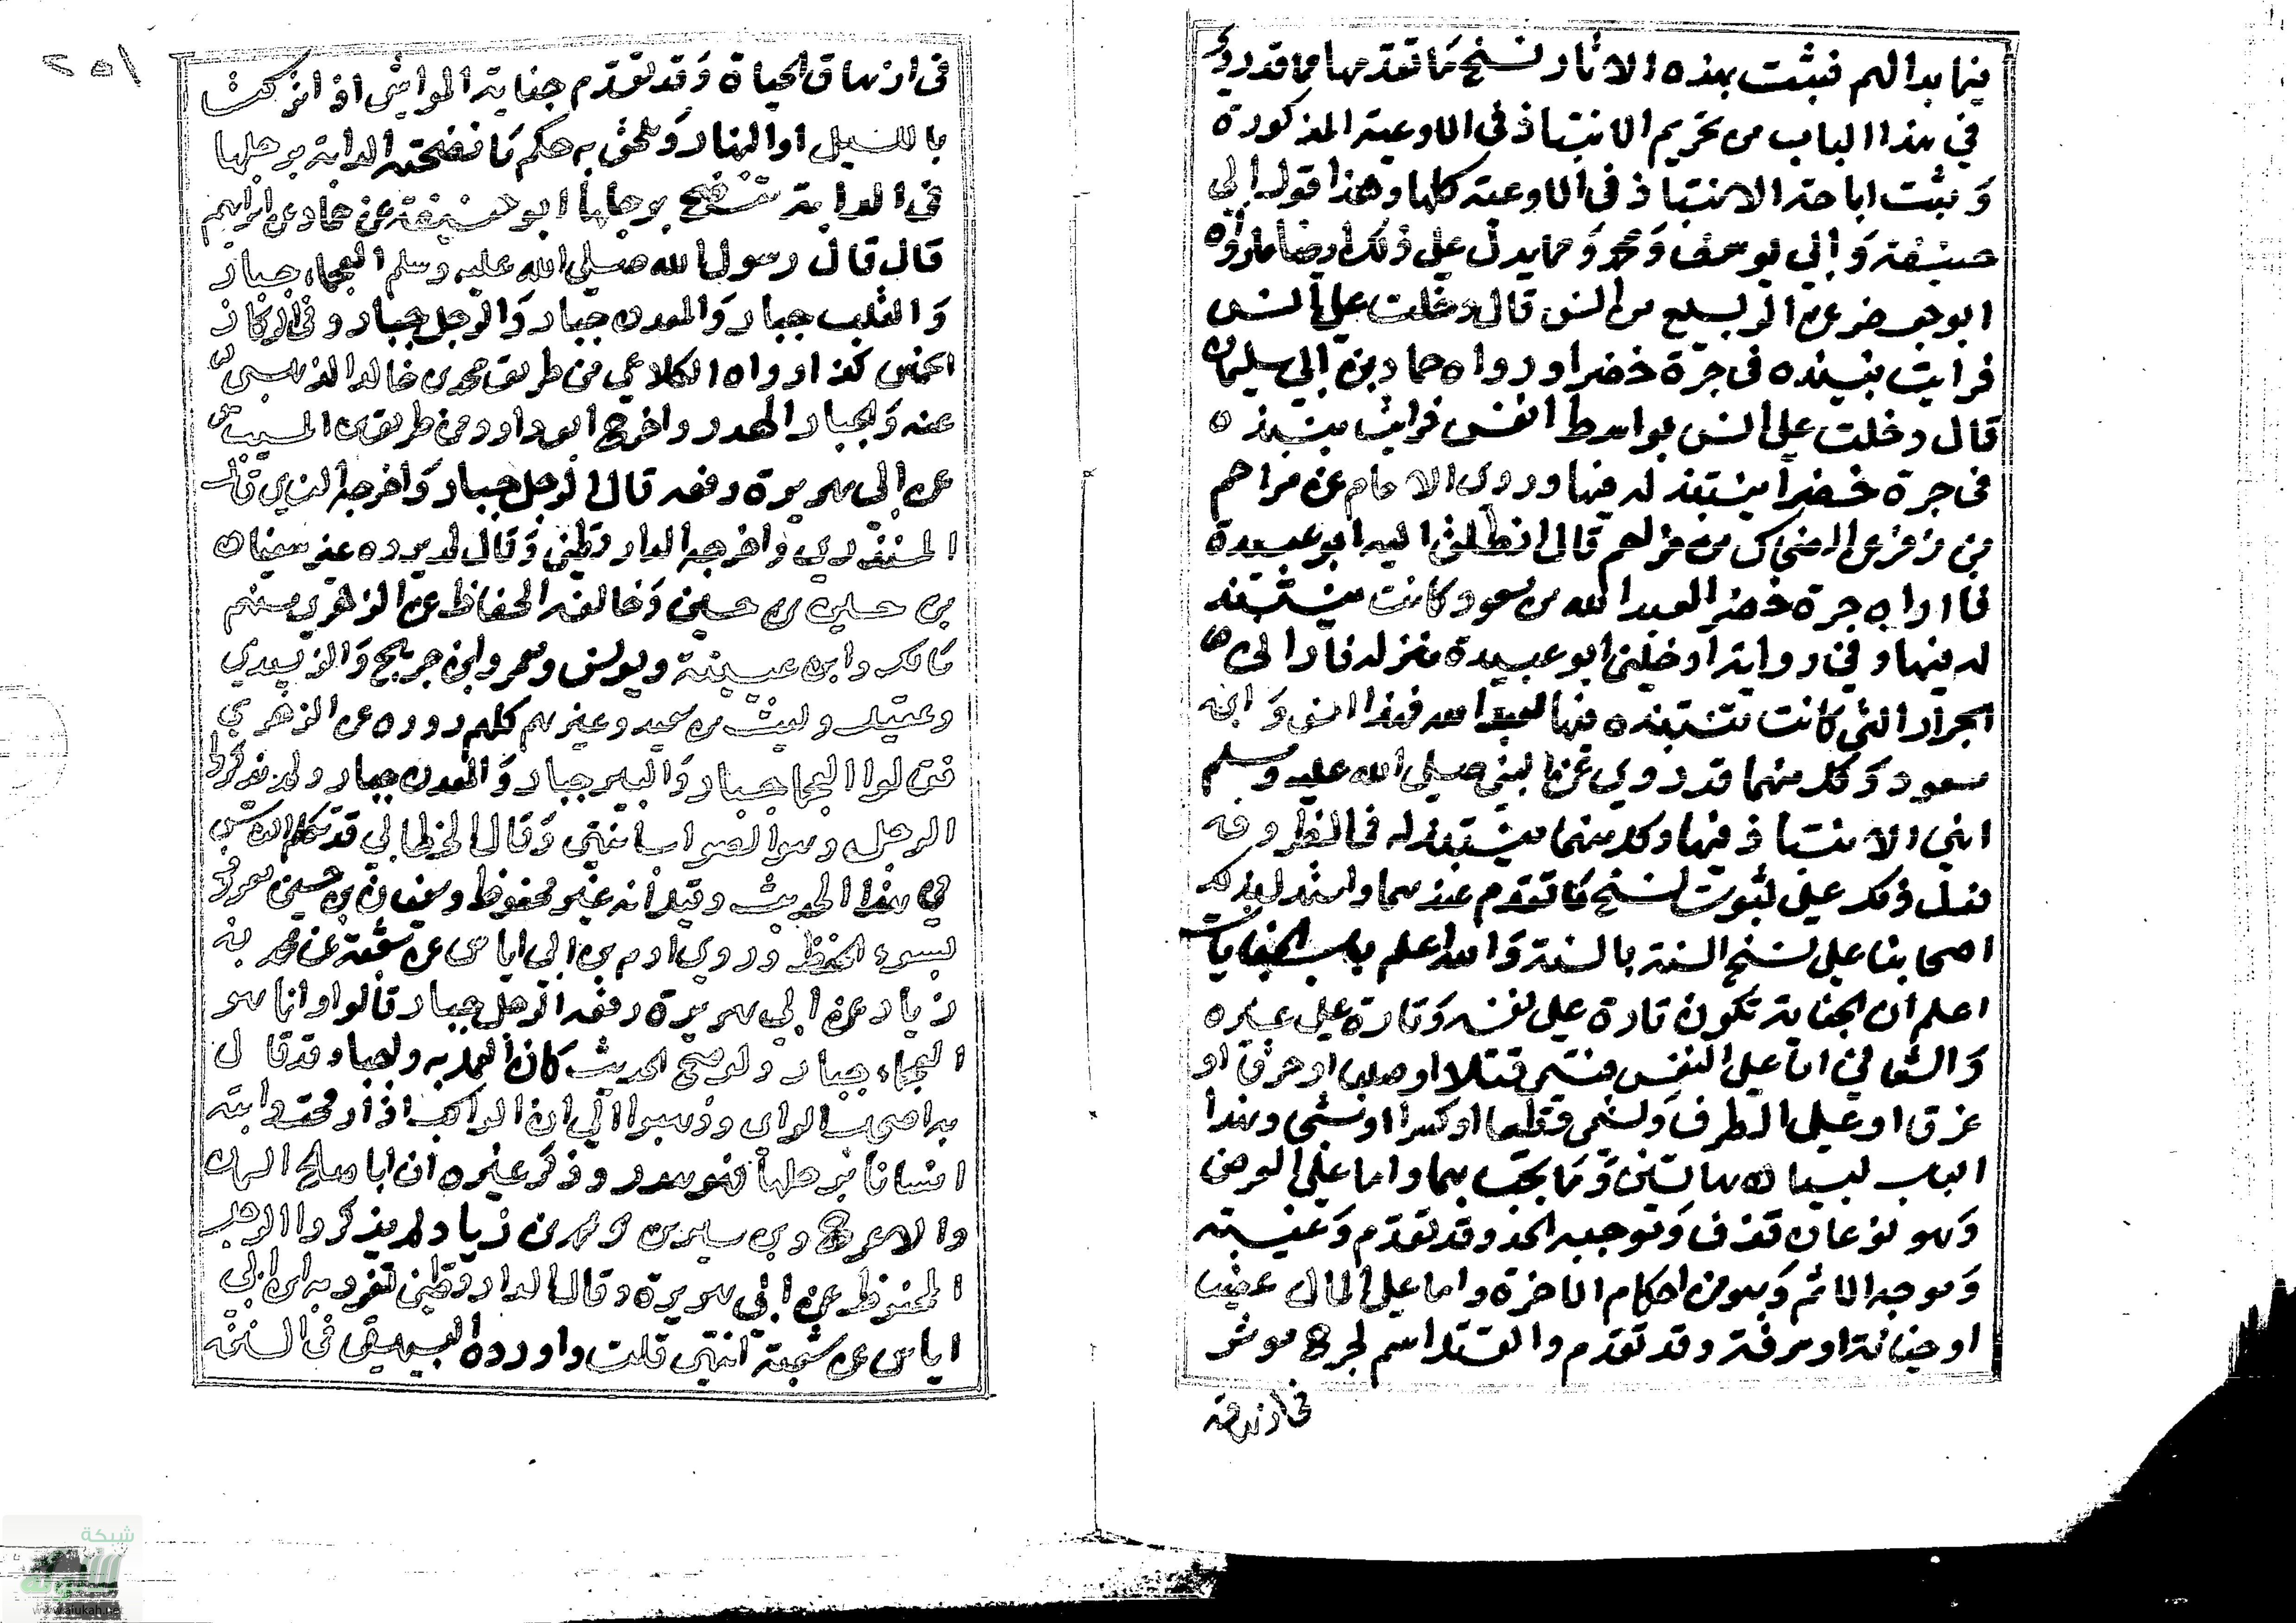 فيما بدا لهم فثبت بهذه الاثار نسخ ما تقدمها مما قد روى
في هذا الباب من تحريم الانتباذ في الاوعية المذكورة
وثبت اباحة الانتباذ في الاوعية كلها وهذا قول ابي
حنيفة وابي يوسف ومحمد ومما يدل على ذلك ايضا ما رواه
ابو جعفر عن الربيع بن انس قال دخلت على انس
فرايت نبيذه في جرة خضرا ورواه حماد بن ابي سليمان
قال دخلت على انس بواسط القصب فرايت نبيذه
في جرة خضرا ينتبذ له فيها وروى الامام عن مزاحم
بن زفر عن الضحاك بن مزاحم قال انطلق اليه ابو عبيدة
فاراه جرة خضرا لعبد الله بن مسعود كانت ينتبذ
له فيها وفي رواية ادخلني ابو عبيدة منزله فاراني
الجرار التي كانت تنتبذ فيها لعبد الله فهذا انس وابن
مسعود وكل منهما قد روي عن النبي صلى الله عليه وسلم
النهي الانتباذ فيها وكل منهما ينتبذ له في الظروف
فدل ذلك على ثبوت نسخ ما تقدم عندهما واستدل بذلك
اصحابنا على نسخ السنة بالسنة والله اعلم باب الجنايات
اعلم ان الجناية تكون تارة على نفسه وتارة على غيره
والثاني اما على النفس فتسمى قتلا او صلبا او حرقا او
غرقا او على الطرف وتسمى قطعا او كسرا او شجى وهذا
الباب لبيان هاتين وما يجب بهما واما على العرض
وهو نوعان قذف وموجبه الحد وقد تقدم وغيبته
وموجبه الاثم وهو من احكام الاخرة واما على المال غصب
او خيانة او سرقة وقد تقدم والقتل اسم لجرح موثر
في ازهاق
٢٥١
في ازهاق الحياة وقد تقدم جناية المواشي اذا انزكت
بالليل او النهار ويلحق به حكم ما نفحته الدابة برجلها
في الدابة تنفح برجلها ابو حنيفة عن حماد عن ابراهيم
قال قال رسول الله صلى الله عليه وسلم العجماء جبار
والقليب جبار والمعدن جبار والرجل جبار وفي الركاز
الخمس كذا رواه الكلاعي من طريق محمد بن خالد الذهبي
عنه والجبار الهدر واخرج ابو داود من طريق بن المسيب
عن ابي هريرة رفعه قال الرجل جبار واخرجه النسائي قال
المنذري واخرجه الدارقطني وقال لم يروه غير سفيان
بن حسين بن حسين وخالفه الحفاظ عن الزهري منهم
مالك وابن عيينة ويونس ومعمر وابن جريج والزبيدي
وعقيل وليث بن سعيد وغيرهم كلهم رووه عن الزهري
فقالوا العجما جبار والبير جبار والمعدن جبار ولم يذكروا
الرجل وهو الصواب انتهى وقال الخطابي قد تكلم الناس
في هذا الحديث وقيل انه غير محفوظ وسفيان بن حسين معروف
بسوء الحفظ وروي ادم بن ابي اياس عن شعبة عن محمد بن
زياد عن ابي هريرة رفعه الرجل جبار قالوا وانما هو
العجماء جبار ولو صح الحديث كان العمل به واجبا وقد قال
به اصحاب الراي وذهبوا الى ان الراكب اذا رمحت دابته
انسانا برجلها فهو هدر وذكر غيره ان ابا صالح السمان
والاعرج وبن سيرين ومحمد بن زياد لم يذكروا الرجل
المحفوظ عن ابي هريرة وقال الدارقطني تفرد به ابن ابي
اياس عن شعبة انتهى قلت واورده البيهقي في السنن
شبكة
الألوكة
www.alukah.net